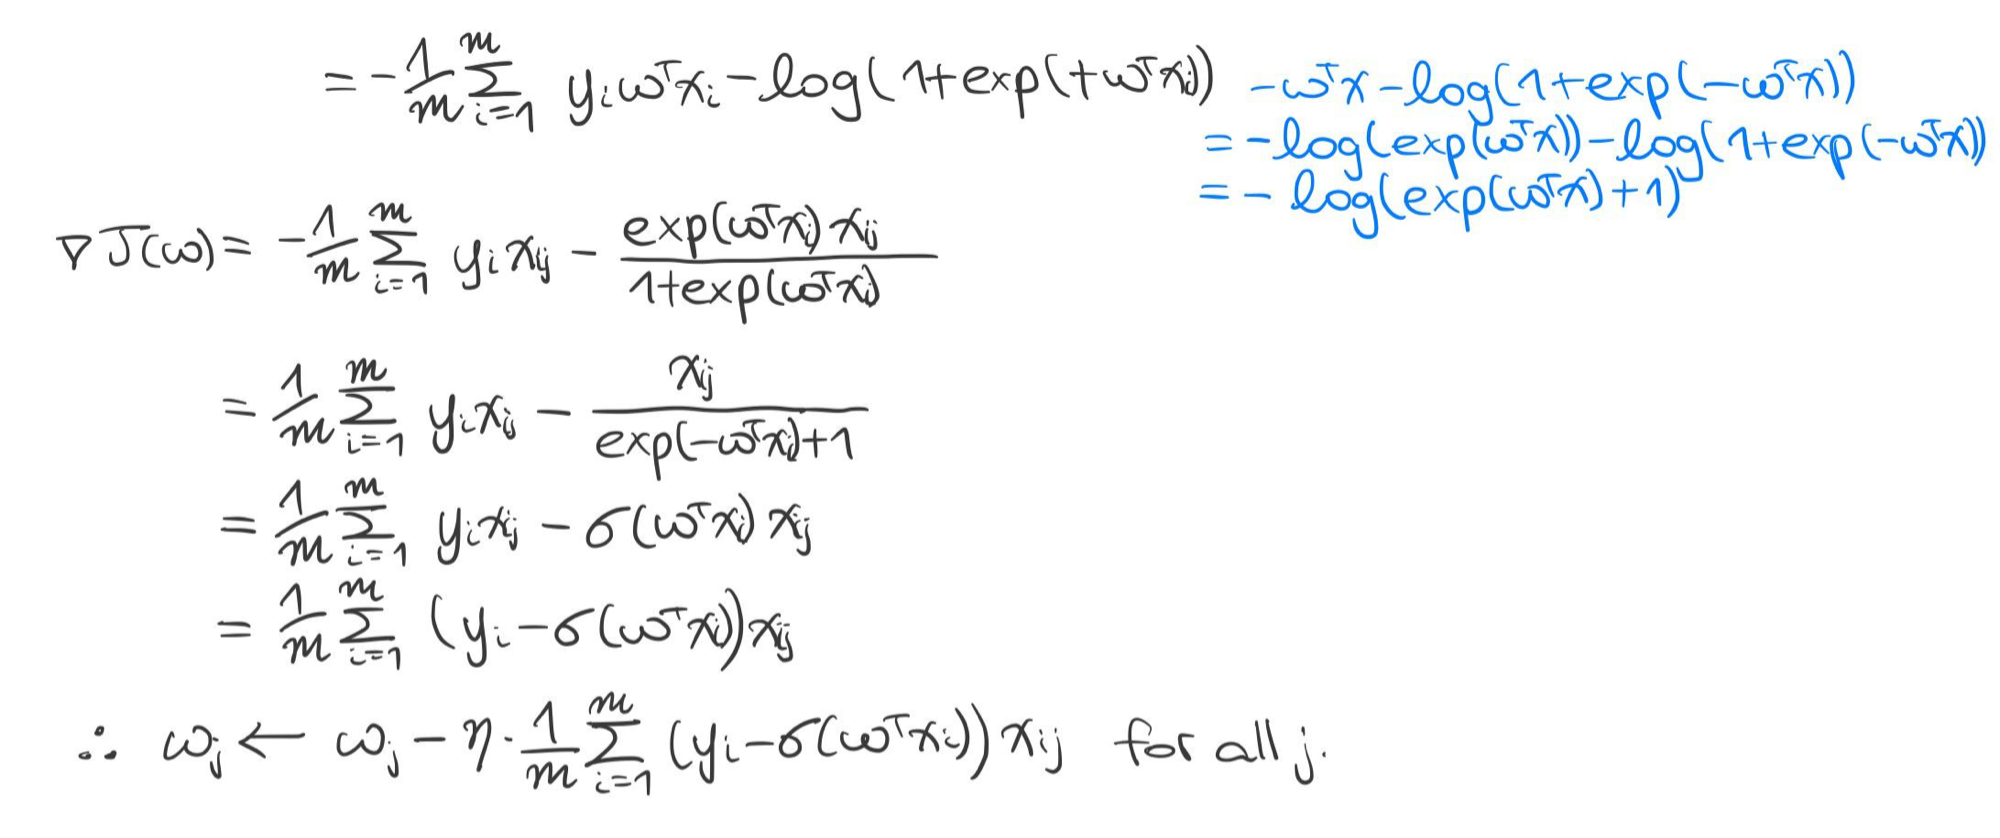 = -1/m Σ_{i=1}^{m} y_i ω^T x_i - log(1+exp(+ω^T x_i))
-ω^T x - log(1+exp(-ω^T x))
= -log(exp(ω^T x)) - log(1+exp(-ω^T x))
= - log(exp(ω^T x)+1)
∇J(ω) = -1/m Σ_{i=1}^{m} y_i x_ij - exp(ω^T x_i) x_ij / 1+exp(ω^T x_i)
= 1/m Σ_{i=1}^{m} y_i x_ij - x_ij / exp(-ω^T x_i)+1
= 1/m Σ_{i=1}^{m} y_i x_ij - σ(ω^T x_i) x_ij
= 1/m Σ_{i=1}^{m} (y_i - σ(ω^T x_i)) x_ij
∴ ω_j ← ω_j - η · 1/m Σ_{i=1}^{m} (y_i - σ(ω^T x_i)) x_ij for all j.